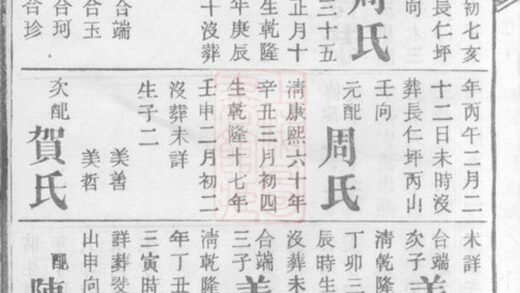 初七亥
長仁坪
向
周氏
三十五
正月十
生乾隆
年庚辰
十沒葬
合端
合玉
合珂
合珍
年丙午二月二
十二日未時沒
葬長仁坪丙山
壬向
元配 周氏
清康熙六十年
辛丑三月初四
生乾隆十七年
壬申二月初二
沒葬未詳
生子二
美善
美哲
次配 賀氏
未詳
合端
次子 美
清乾隆
丁卯三
辰時生
沒葬未
合端
三子 美
清乾隆
年丁丑
三寅時
詳葬
山申向
配 陳